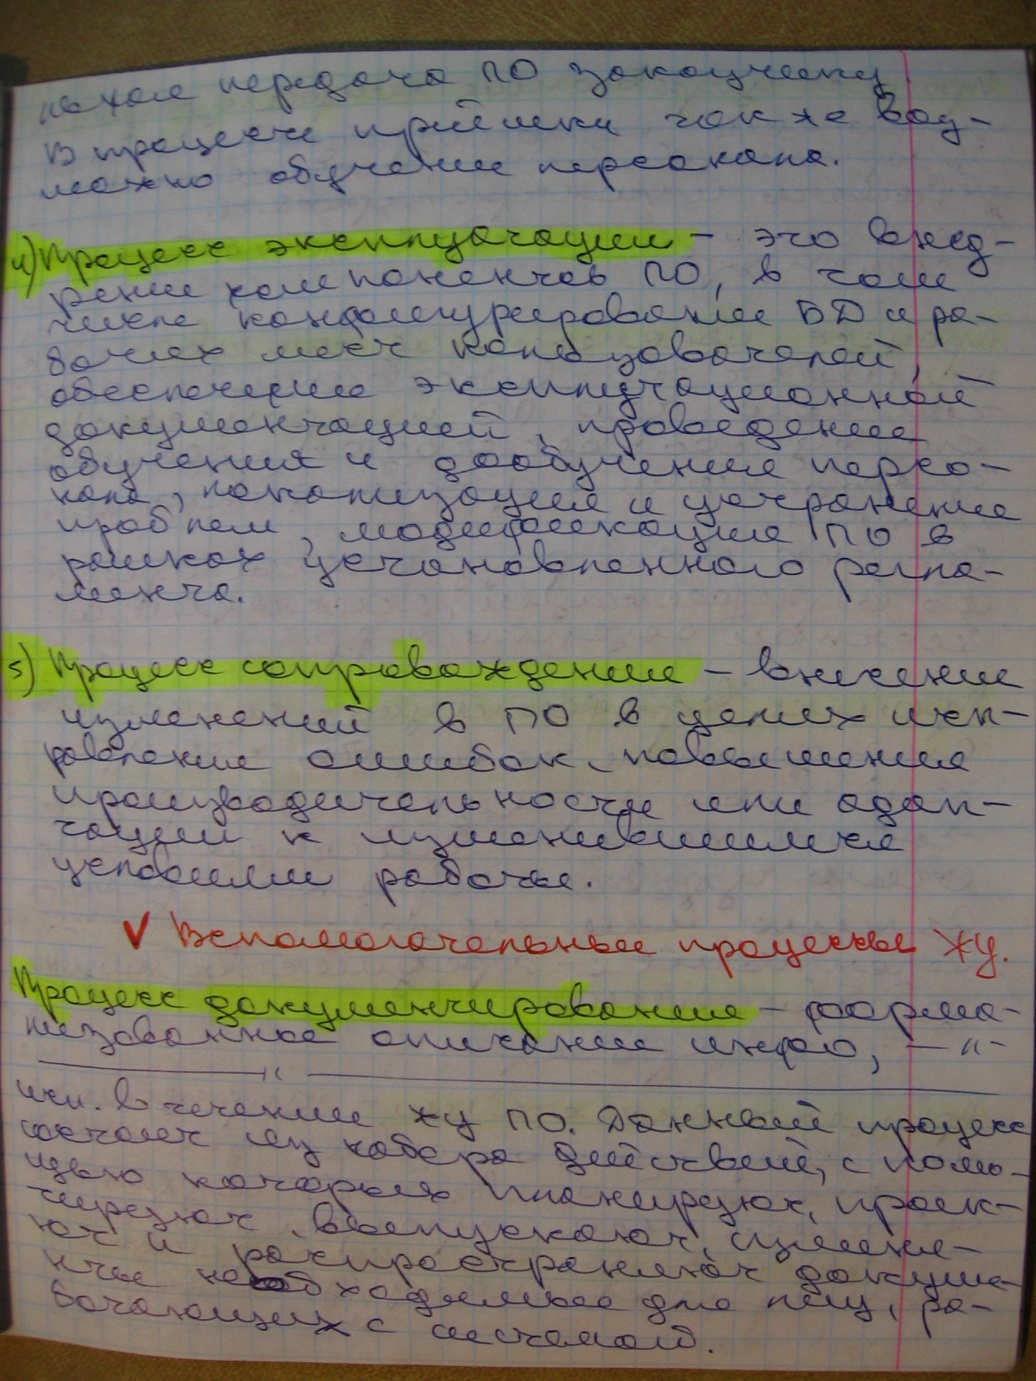 передача ПО заказчику.
В процессе приёмки также воз-
можно обучение персонала.
4) Процесс эксплуатации - это внед-
рение компонентов ПО, в том
числе конфигурирование БД и ра-
бочих мест пользователей,
обеспечение эксплуатационной
документацией, проведение
обучения и дообучения персо-
нала, локализация и устранение
проблем, модификация ПО в
рамках установленного регла-
мента.
5) Процесс сопровождения - внесение
изменений в ПО в целях исп-
равления ошибок, повышения
производительности или адап-
тации к изменившимся
условиям работы.
✓ Вспомогательные процессы ЖЦ.
Процесс документирования - форма-
лизованное описание инфо, — " -
— " —
исп. в течении ЖЦ ПО. Данный процесс
состоит из набора действий, с помо-
щью которых планируют, проек-
тируют, выпускают, изменя-
ют и распространяют докуме-
нты необходимые для лиц, ра-
ботающих с системой.